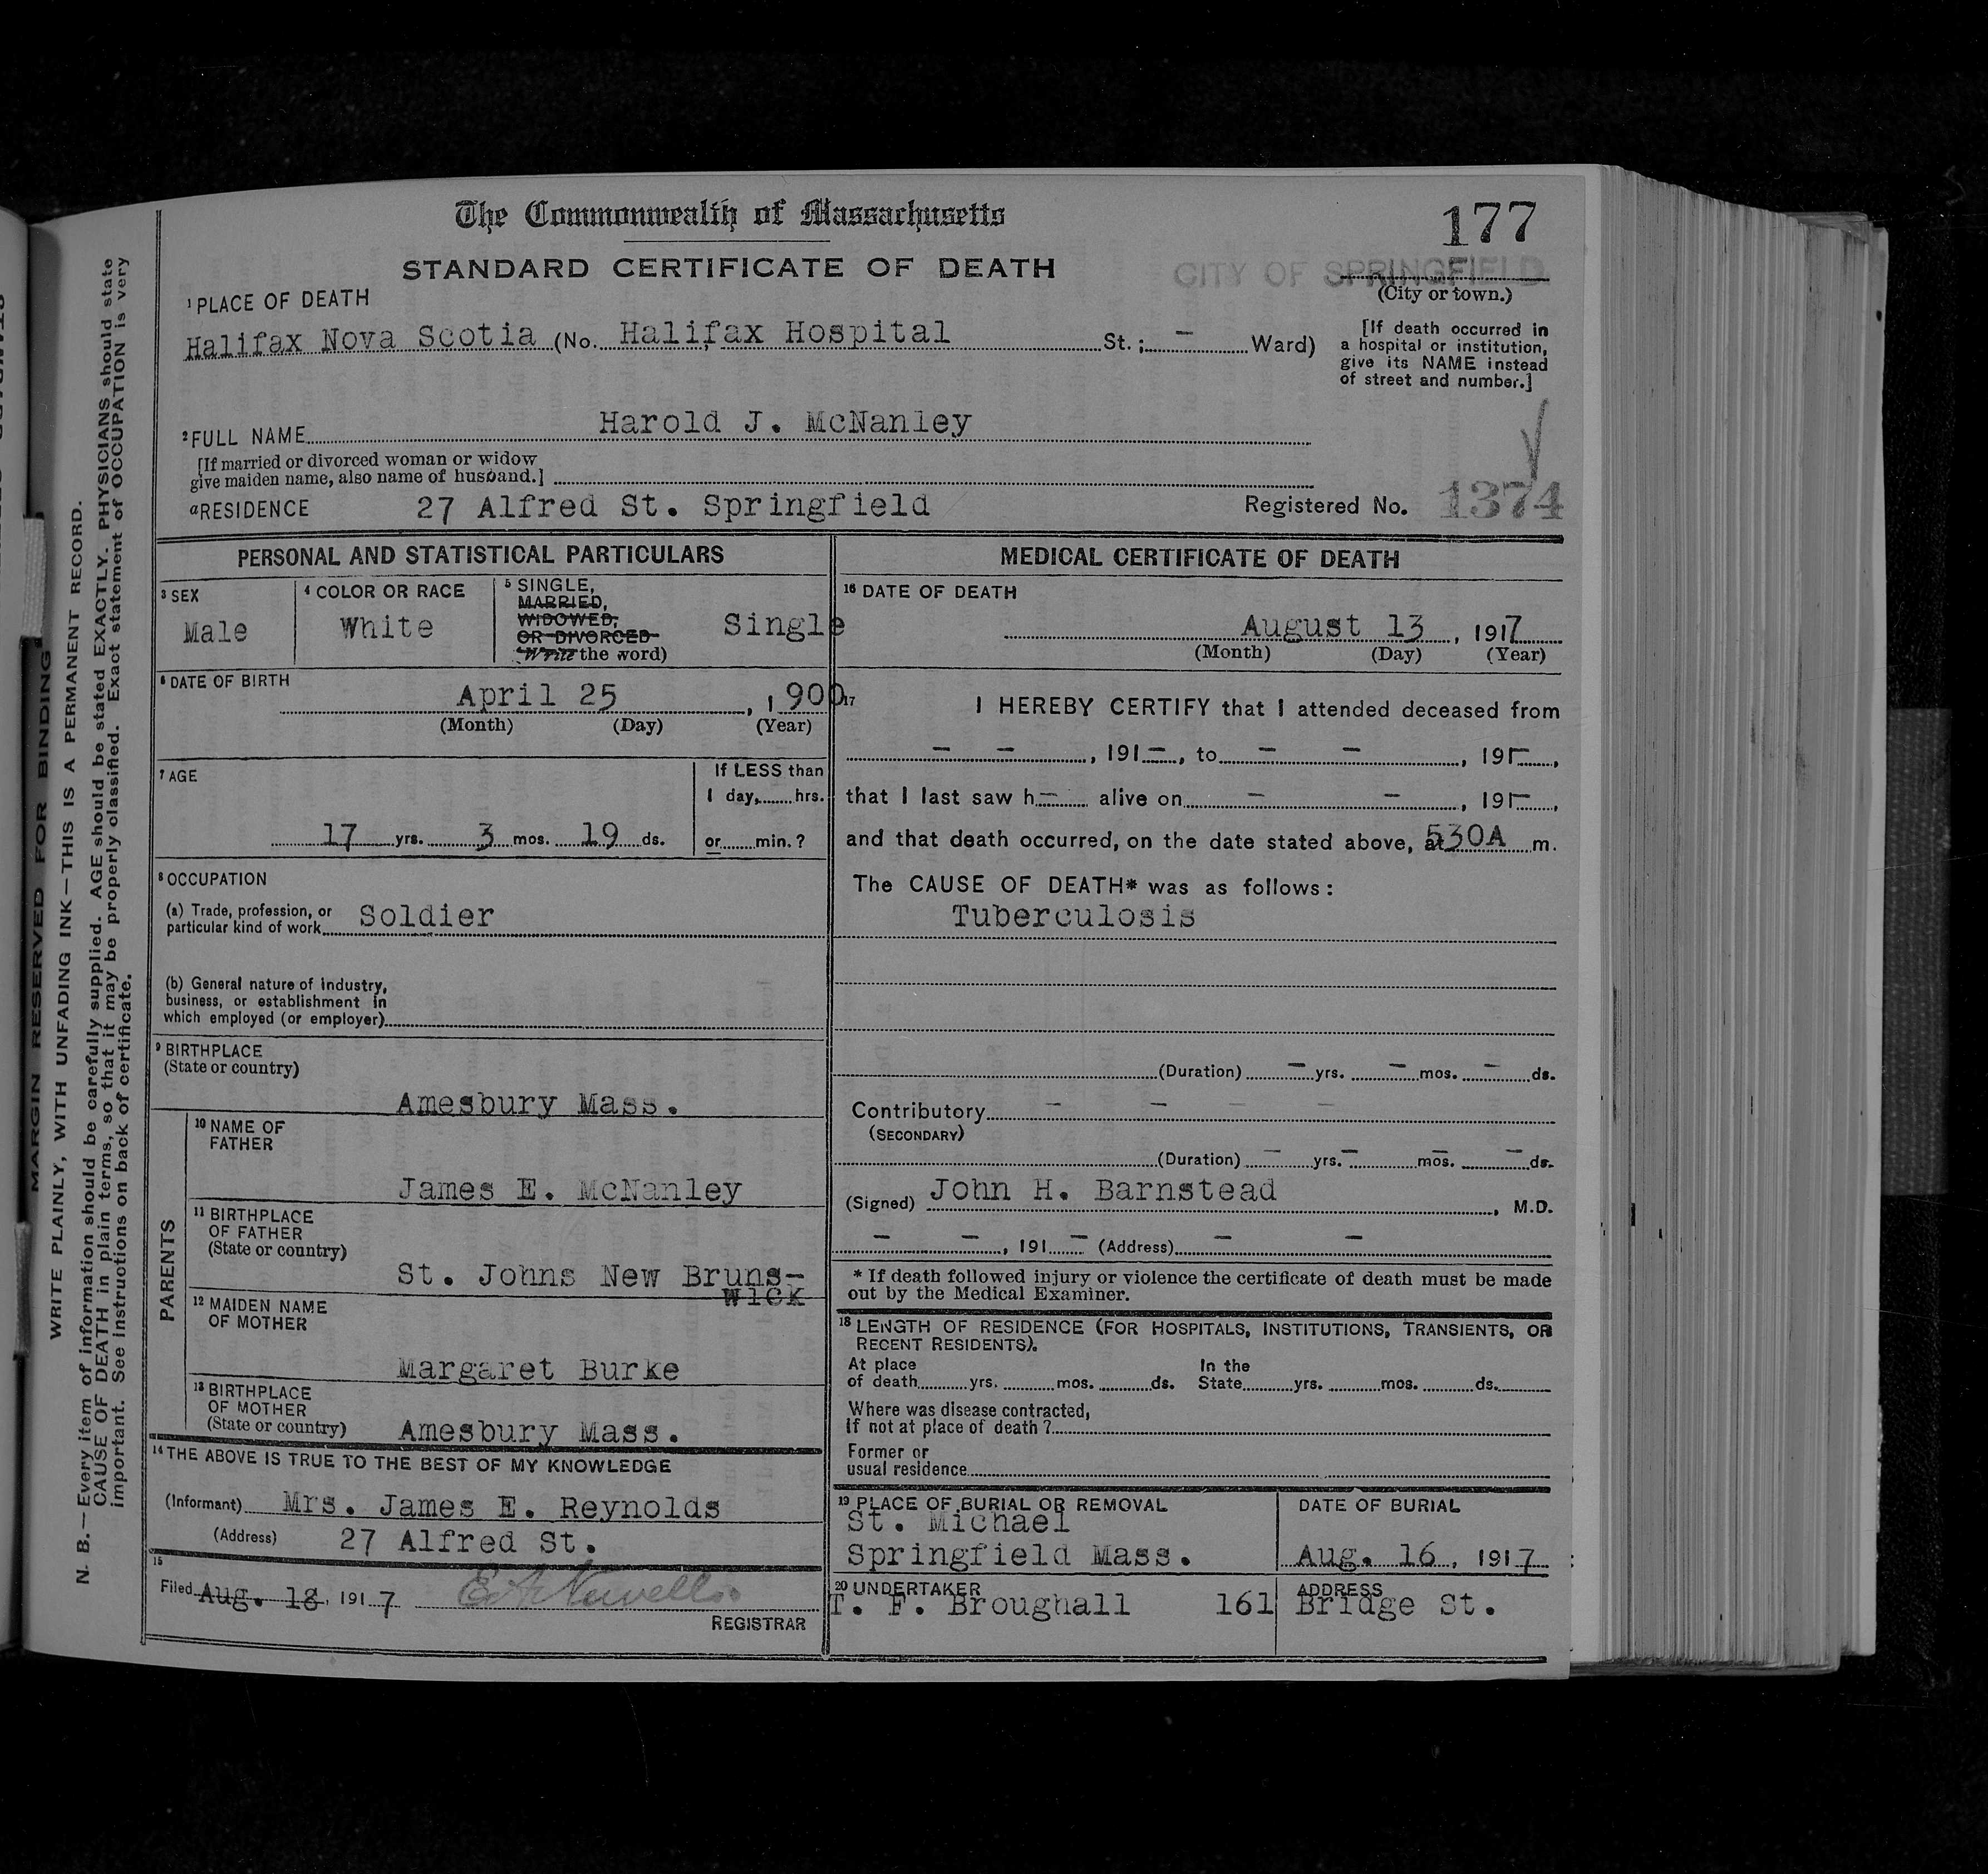 The Commonwealth of Massachusetts
177
STANDARD CERTIFICATE OF DEATH
CITY OF SPRINGFIELD
(City or town.)
1 PLACE OF DEATH
Halifax Nova Scotia (No. Halifax Hospital St.; — Ward)
[If death occurred in
a hospital or institution,
give its NAME instead
of street and number.]
2 FULL NAME Harold J. McNanley
[If married or divorced woman or widow
give maiden name, also name of husband.]
a RESIDENCE 27 Alfred St. Springfield
Registered No. 1374
PERSONAL AND STATISTICAL PARTICULARS
3 SEX
Male
4 COLOR OR RACE
White
5 SINGLE,
MARRIED,
WIDOWED,
OR DIVORCED
(Write the word)
Single
6 DATE OF BIRTH
April 25, 1900
(Month) (Day) (Year)
7 AGE
17 yrs. 3 mos. 19 ds.
If LESS than
1 day, hrs.
or min.?
8 OCCUPATION
(a) Trade, profession, or
particular kind of work Soldier
(b) General nature of industry,
business, or establishment in
which employed (or employer)
9 BIRTHPLACE
(State or country)
Amesbury Mass.
PARENTS
10 NAME OF
FATHER
James E. McNanley
11 BIRTHPLACE
OF FATHER
(State or country)
St. Johns New Bruns-
wick
12 MAIDEN NAME
OF MOTHER
Margaret Burke
13 BIRTHPLACE
OF MOTHER
(State or country) Amesbury Mass.
14 THE ABOVE IS TRUE TO THE BEST OF MY KNOWLEDGE
(Informant) Mrs. James E. Reynolds
(Address) 27 Alfred St.
15
Filed Aug. 18, 1917 E. A. Newell
REGISTRAR
MEDICAL CERTIFICATE OF DEATH
16 DATE OF DEATH
August 13, 1917
(Month) (Day) (Year)
17 I HEREBY CERTIFY that I attended deceased from
— —, 191—, to — —, 191—,
that I last saw h— alive on — —, 191—,
and that death occurred, on the date stated above, at 530A m.
The CAUSE OF DEATH* was as follows:
Tuberculosis
(Duration) — yrs. — mos. — ds.
Contributory — — — —
(SECONDARY)
(Duration) — yrs. — mos. — ds.
(Signed) John H. Barnstead, M.D.
— —, 191— (Address) — —
* If death followed injury or violence the certificate of death must be made
out by the Medical Examiner.
18 LENGTH OF RESIDENCE (FOR HOSPITALS, INSTITUTIONS, TRANSIENTS, OR
RECENT RESIDENTS).
At place
of death yrs. mos. ds.
In the
State yrs. mos. ds.
Where was disease contracted,
if not at place of death?
Former or
usual residence
19 PLACE OF BURIAL OR REMOVAL
St. Michael
Springfield Mass.
DATE OF BURIAL
Aug. 16, 1917
20 UNDERTAKER
T. F. Broughall
ADDRESS
161 Bridge St.
MARGIN RESERVED FOR BINDING
WRITE PLAINLY, WITH UNFADING INK—THIS IS A PERMANENT RECORD.
N. B.—Every item of information should be carefully supplied. AGE should be stated EXACTLY. PHYSICIANS should state
CAUSE OF DEATH in plain terms, so that it may be properly classified. Exact statement of OCCUPATION is very
important. See instructions on back of certificate.